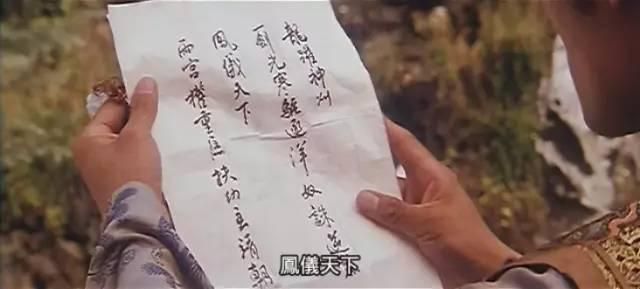 龍 神州
劍光寒 洋奴誅
鳳儀天下
兩宮權重 扶幼主清朝
鳳儀天下